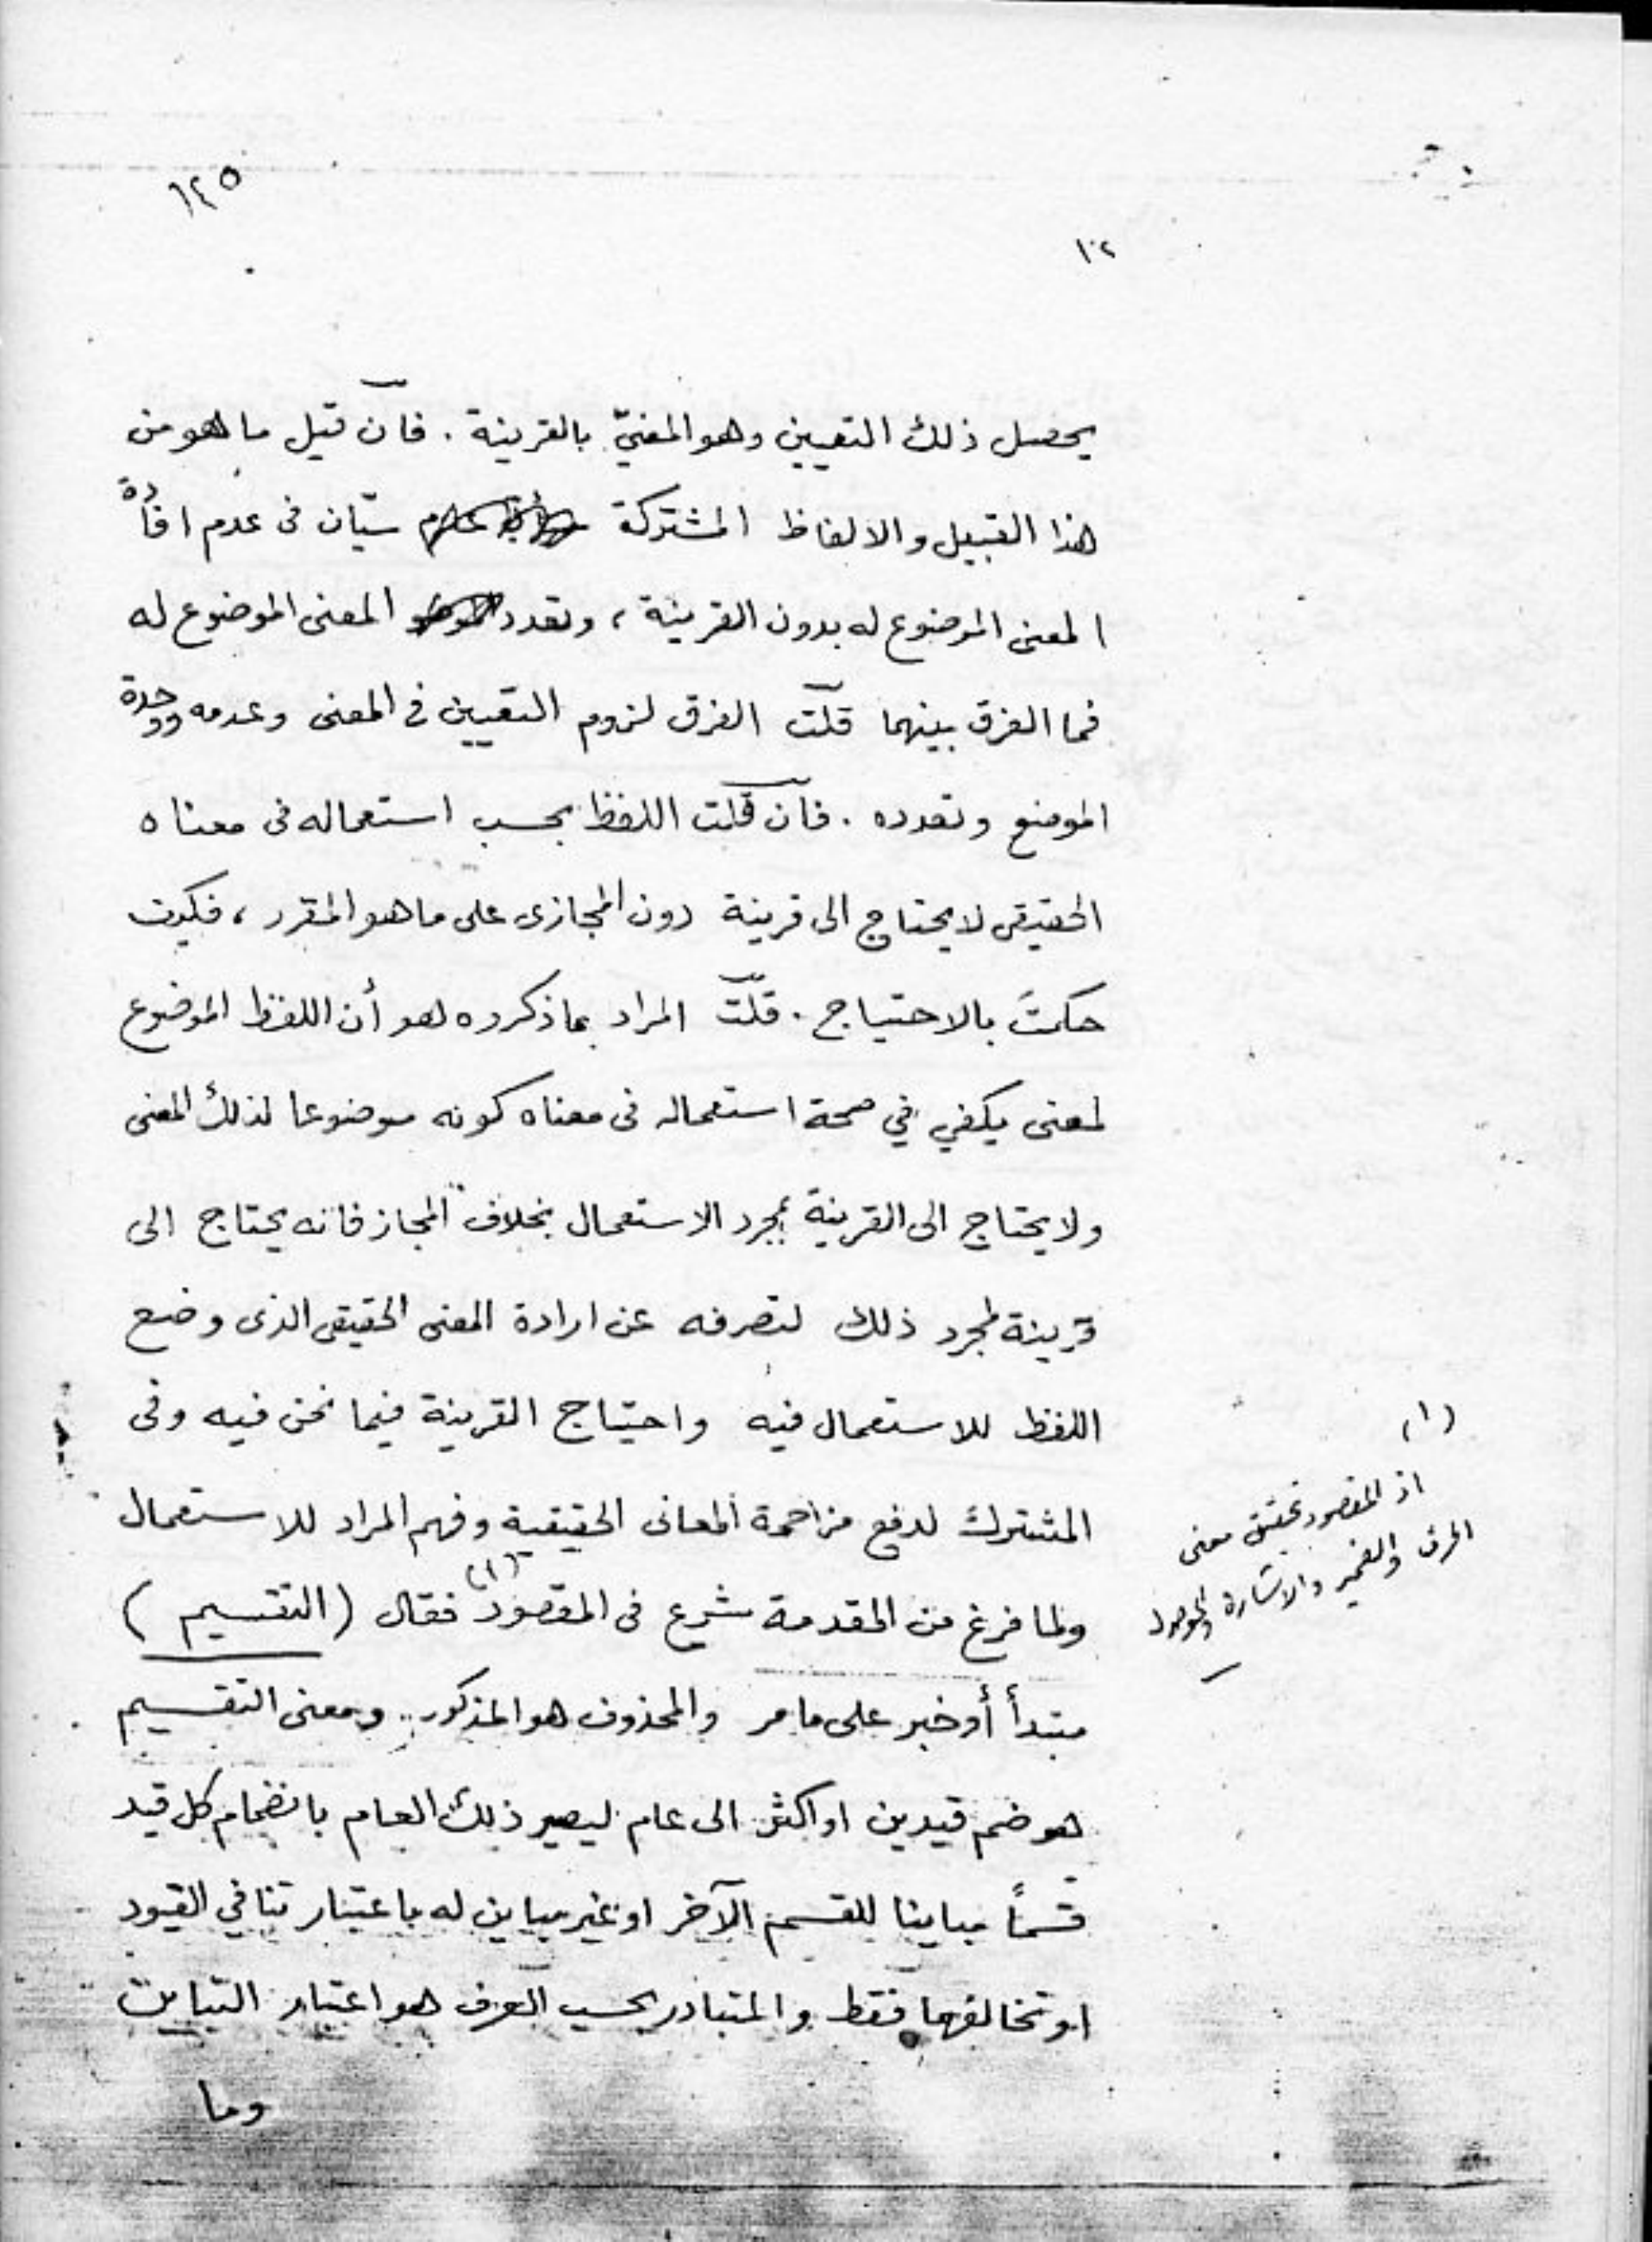 ١٢٥
١٠٢
يحصل ذلك التعيين وهو المعنيّ بالقرينة . فان قيل ما هو من
هذا القبيل والالفاظ المشتركة سيّان فى عدم افادة
المعنى الموضوع له بدون القرينة ، وتعدد المعنى الموضوع له
فما الفرق بينهما قلت الفرق لزوم التعيين فى المعنى وعدمه ووحدة
الموضع وتعدده . فان قلت اللفظ بحسب استعماله فى معناه
الحقيقى لا يحتاج الى قرينة دون المجازى على ما هو المقرر ، فكيف
حكمتَ بالاحتياج . قلت المراد بما ذكروه هو أن اللفظ الموضوع
لمعنى يكفي في صحة استعماله فى معناه كونه موضوعا لذلك المعنى
ولا يحتاج الى القرينة لمجرد الاستعمال بخلاف المجاز فانه يحتاج الى
قرينة لمجرد ذلك لتصرفه عن ارادة المعنى الحقيقى الذى وضع
اللفظ للاستعمال فيه واحتياج القرينة فيما نحن فيه وفى
المشترك لدفع مزاحمة المعانى الحقيقية وفهم المراد للاستعمال
ولما فرغ من المقدمة شرع فى المقصود (١) فقال ( التقسيم )
مبتدأ أو خبر على ما مر والمحذوف هو المذكور. ومعنى التقسيم
هو ضم قيدين او اكثر الى عام ليصير ذلك العام بانضمام كل قيد
قسماً مباينا للقسم الآخر او غير مباين له باعتبار تنافي القيود
او تخالفها فقط والمتبادر بحسب العرف هو اعتبار التباين
وما
(١)
اذ المقصود تحقيق معنى
الحرف والضمير والاشارة والموصول